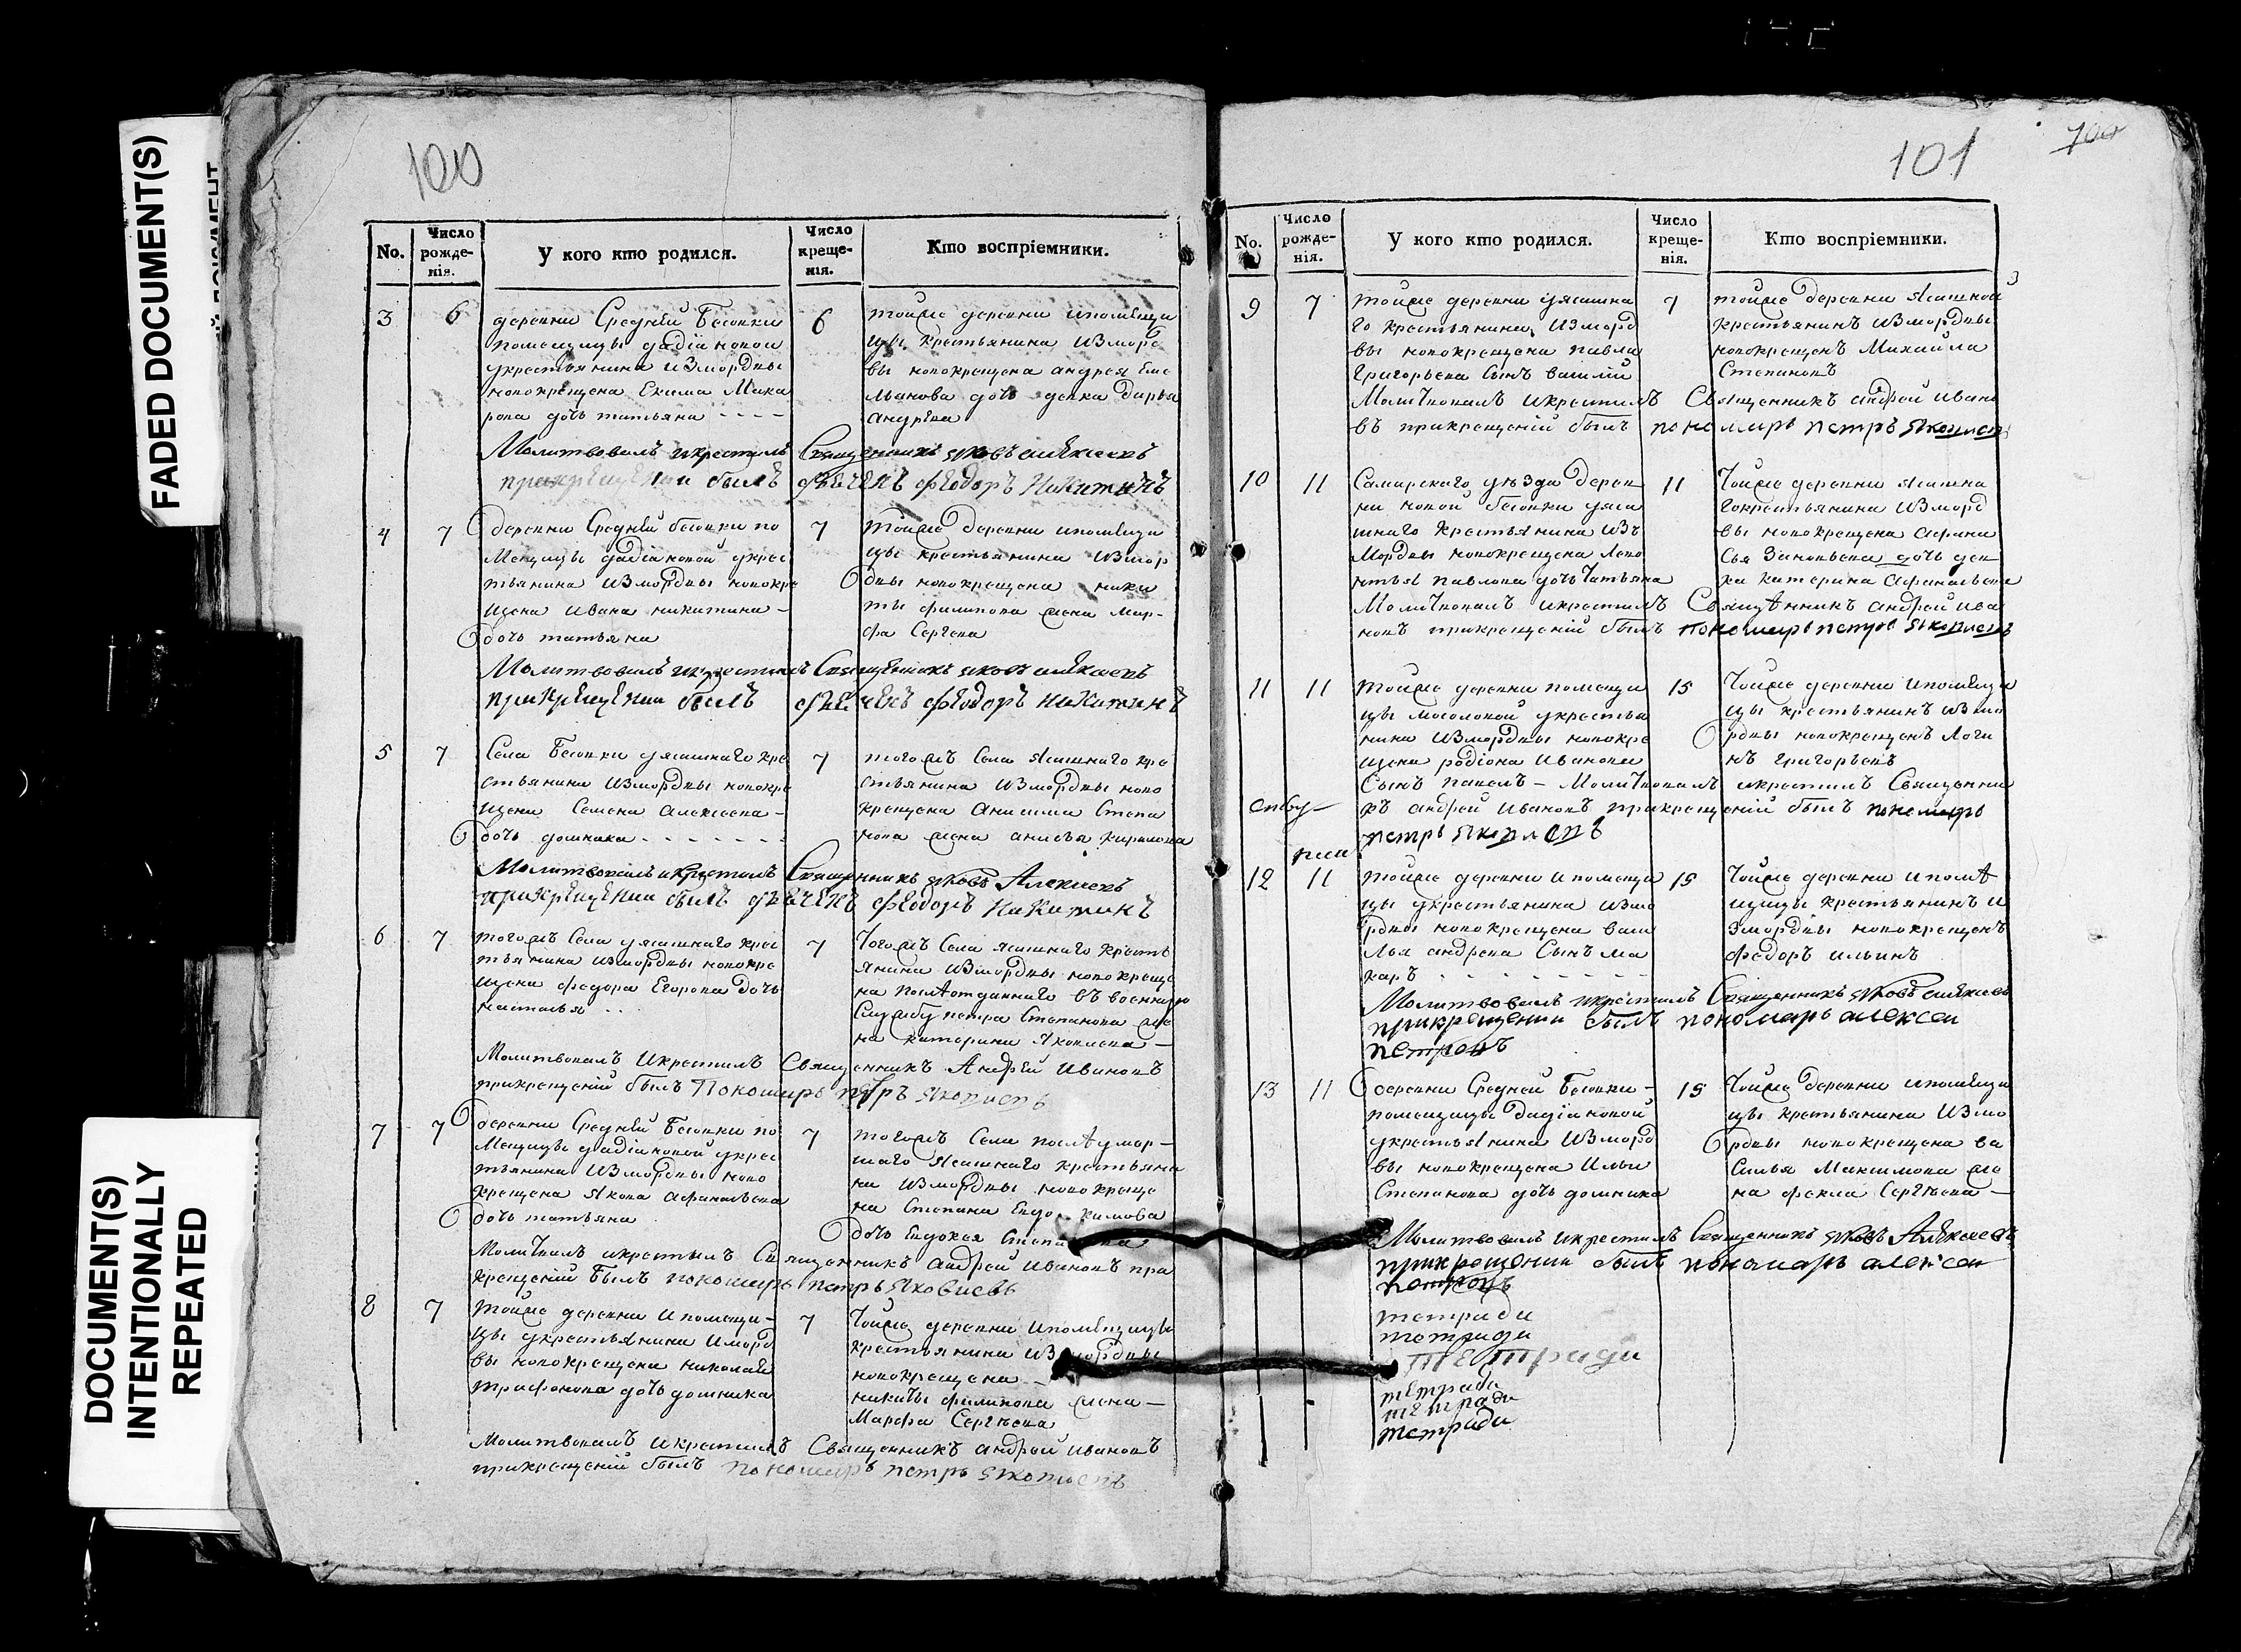 FADED DOCUMENT(S)
DOCUMENT(S)
INTENTIONALLY
REPEATED
100
No.
Число рожде-нія.
У кого кто родился.
Число креще-нія.
Кто воспріемники.
3
6
деревни Средней Бесовки
помещицы
укрестьянина изМордвы
новокрещена Екима Мака
рова дочь татьяна - - - -
6
тойже деревни ипомещи
цы крестьянина измор
вы новокрещена андрея Еме
льянова дочь девка Дарья
Андреева
Молитвовалъ икрестилъ Священникъ яковъ алексеевъ
прикрещении былъ феодоръ Никитинъ
4
7
деревни Средней бесовки по
мещицы укрес
тьянина изМордвы новокре
щена Ивана никитина -
дочь татьяна
7
тойже деревни ипомещи
цы крестьянина измор
двы новокрещена ники
ты филипова жена Мар-
фа Сергева
Молитвовалъ икрестилъ Священникъ яковъ алексеевъ
прикрещении былъ феодоръ Никитинъ
5
7
Села Бесовки уясашнаго кре
стьянина измордвы новокре
щена Семена Алексеева -
дочь домника - - - - - -
7
тогожъ Села Ясашнаго кре
стьянина измордвы ново
крещена Анисима Степа
нова жена анисья кирилова
Молитвовалъ икрестилъ Священникъ яковъ Алексеевъ
прикрещении былъ феодоръ Никитинъ
6
7
тогожъ Села уясашнаго крес
тьянина измордвы новокре
щена федора Егорова дочь
наталья
7
тогожъ Села ясашнаго кресть
янина измордвы новокреще
на послѣотданнаго въ военную
Службу петра Степанова же
на катерина Яковлева -
Молитвовалъ икрестилъ Священникъ Андрей Ивановъ
прикрещеній былъ Пономарь петръ яковлевъ
7
7
деревни Средней Бесовки по
мещицы укрес
тьянина измордвы ново
крещена Якова афанасьева
дочь татьяна
7
тогожъ Села послѣумер-
шаго Ясашнаго крестьяни
на измордвы новокреще
на Степана Евдокимова
дочь Евдокея
Молитвалъ икрестилъ Священникъ андрей Ивановъ при
крещеній былъ пономарь петръ Яковлевъ
8
7
тойже деревни ипомещи-
цы укрестьянина Имордвы
вы новокрещена николая
трифонова дочь домника
7
тойже деревни ипомещицы
крестьянина измордвы
новокрещена -
никиты филипова жена -
Марфа Сергѣева
Молитвовалъ икрестилъ Священникъ андрей Ивановъ
прикрещеній былъ пономарь петръ яковлевъ
101
No.
Число рожде-нія.
У кого кто родился.
Число креще-нія.
Кто воспріемники.
9
7
тойже деревни уясашна
го крестьянина измордв
вы новокрещена павла
Григорьева Сынъ василій
7
тойже деревни Ясашной
крестьянинъ измордвы
новокрещенъ Михайла
Степановъ
Молитвовалъ икрестилъ Священникъ андрей Ивано
въ прикрещеній былъ пономарь петръ яковлевъ
10
11
Самарскаго уѣзда дерев
ни новой бесовки уяса
шнаго крестьянина изъ
Мордвы новокрещена Леон
тья павлова дочь татьяна
11
тойже деревни ясашна
гокрестьянина измордв
вы новокрещена афана
сья дочь дев
ка катерина афанасьева
Молитвовалъ икрестилъ Священникъ андрей Ива
новъ прикрещеній былъ пономарь петръ яковлевъ
11
11
тойже деревни помещи
цы укрестья
нина измордвы новокре
щена родіона Иванова
Сынъ павелъ - Молитвовалъ икрестилъ Священни
15
тойже деревни ипомещи
цы крестьянинъ измо
рдвы новокрещенъ Логи
нъ Григорьевъ
къ андрей Ивановъ прикрещеній былъ пономарь
петръ яковлевъ
12
11
тойже деревни ипомещи
цы укрестьянина измо
рдвы новокрещена васи
лья андреева Сынъ ма
каръ
15
тойже деревни ипомѣ
щицы крестьянинъ и
змордвы новокрещенъ
федоръ ильинъ
Молитвовалъ икрестилъ Священникъ яковъ алексеевъ
прикрещении былъ пономарь алексеи
петровъ
13
11
деревни Средней Бесовки -
помещицы
укрестьянина измордв
вы новокрещена Ильи
Степанова дочь домника
15
тойже деревни ипомещи
цы крестьянина измо
рдвы новокрещена ва
силья Максимова же
на фекла Сергѣева -
Молитвовалъ икрестилъ Священникъ яковъ Алексеевъ
прикрещении былъ пономарь алексеи
петровъ
тетради
тетради
тетради
тетради
тетради
тетради